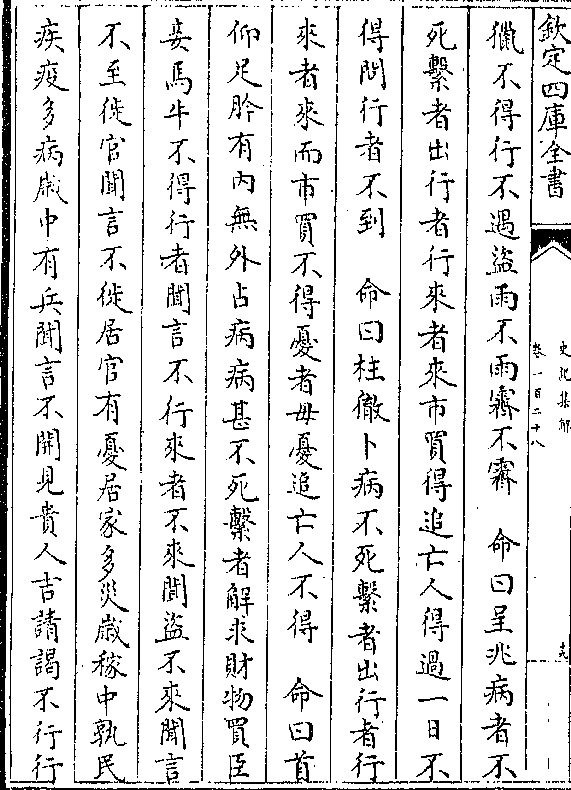 欽定四庫全書
史記集解
卷一百二十八
獵不得行不遇盜雨不雨霽不霽　命曰呈兆病者不
死繫者出行者行來者來市買得追亡人得過一日不
得問行者不到　命曰柱徹卜病不死繫者出行者行
來者來而市買不得憂者毋憂追亡人不得　命曰首
仰足肣有内無外占病病甚不死繫者解求財物買臣
妾馬牛不得行者聞言不行來者不來聞盜不來聞言
不至徙官聞言不徙居官有憂居家多災歲稼中孰民
疾疫多病歲中有兵聞言不開見貴人吉請謁不行行